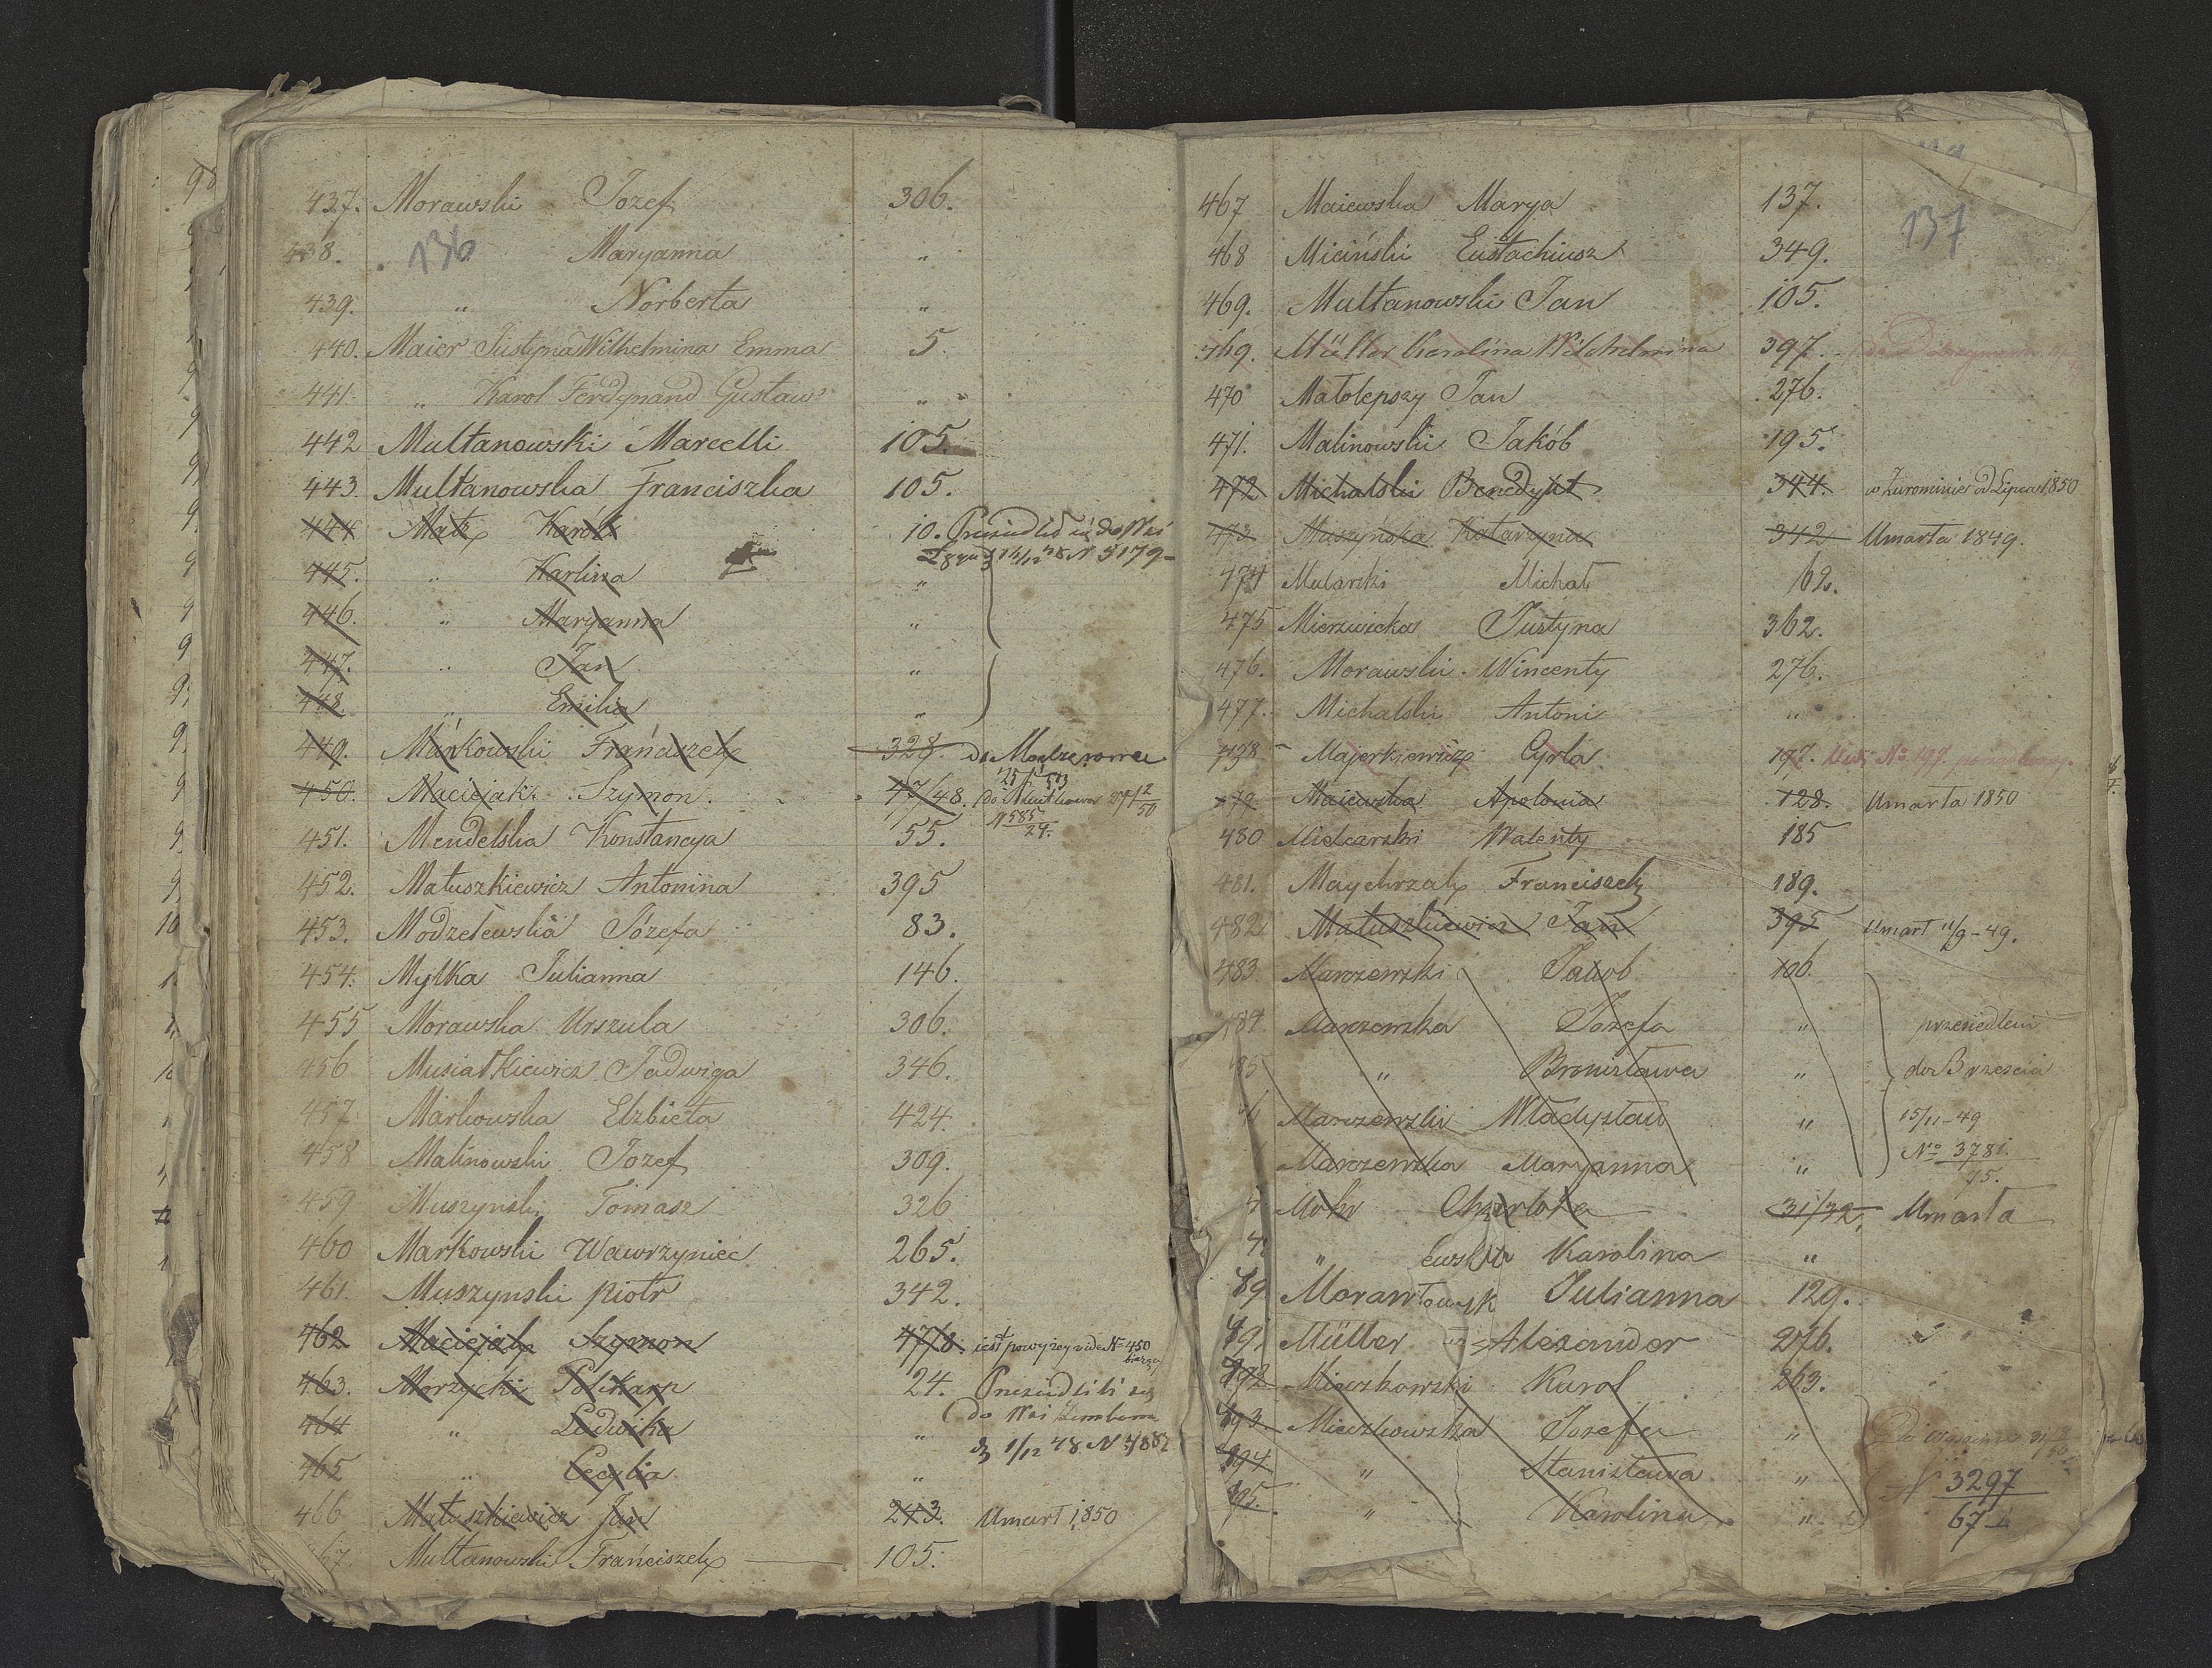 136
437. Morawski Jozef 306.
438. " Maryanna "
439. " Norberta "
440. Maier Justyna Wilhelmina Emma 5
441. " Karol Ferdynand Gustaw "
442 Multanowski Marcelli 105.
443. Multanowska Franciszka 105.
444 Matz Karól 10. Przesiedlił się do Wsi
445. " Karlina " 14/12 48 N 5179
446. " Maryanna "
447. " Jan "
448. " Emilia "
449. Markowski Franciszek 328. do Modzerowa
450. Maciejak Szymon. 47/48. do 27/2 50
N 585/24.
451. Mendelska Konstancya 55.
452. Matuszkiewicz Antonina 395
453. Modzelewska Józefa 83.
454. Mylka Julianna 146.
455 Morawska Urszula 306.
456 Musiałkiewicz Jadwiga 346.
457 Markowska Elzbieta 424.
458 Malinowski Jozef 309.
459 Muszynski Tomasz 326
460 Markowski Wawrzyniec 265.
461. Muszynski Piotr 342.
462 Maciejak Szymon 47/8. iest powyżey vide No 450
463. Morzycki Polikarp 24. Przesiedlili się
464 " Ludwika " do Wsi
465 " Cecylia " d. 1/12 48 N
466 Matuszkiewicz Jan 243. Umarł 1850
467. Multanowski Franciszek 105.
137
467 Maiewska Marya 137.
468 Miciński Eustachiusz 349.
469. Multanowski Jan 105.
469. Müller Karolina Wilhelmina 397.
470 Małolepszy Jan 276.
471. Malinowski Jakób 195.
472 Michalski Benedykt 344. w Zurominie od Lipca 1850
473 Muszyńska Katarzyna 342 Umarła 1849.
474 Mularski Michał 62.
475 Mierzwicka Justyna 362.
476. Morawski Wincenty 276.
477. Michalski Antoni "
478 Majerkiewicz Cyrla 197. No 197.
479. Maiewska Apolonia 128. Umarła 1850
480 Mielcarski Walenty 185
481. Maychrzak Franciszek 189.
482 Matuszkiewicz Jan 395 Umarł 11/9 - 49.
483. Marszewski Jakob 106.
484. Marszewska Jozefa " przesiedleni
485 " Bronisława " do Brzescia
Marszewski Władysław " 15/11 - 49
Marszewska Maryanna " No 3781./75.
Mohr Charlota 31/32, Umarła
" Karolina "
Julianna 129.
491 Müller Alexander 276.
492 Mieczkowski Karol 263.
493. Mieczkowska Jozefa "
494 " Stanisława " N 3297
495. " Karolina " 67